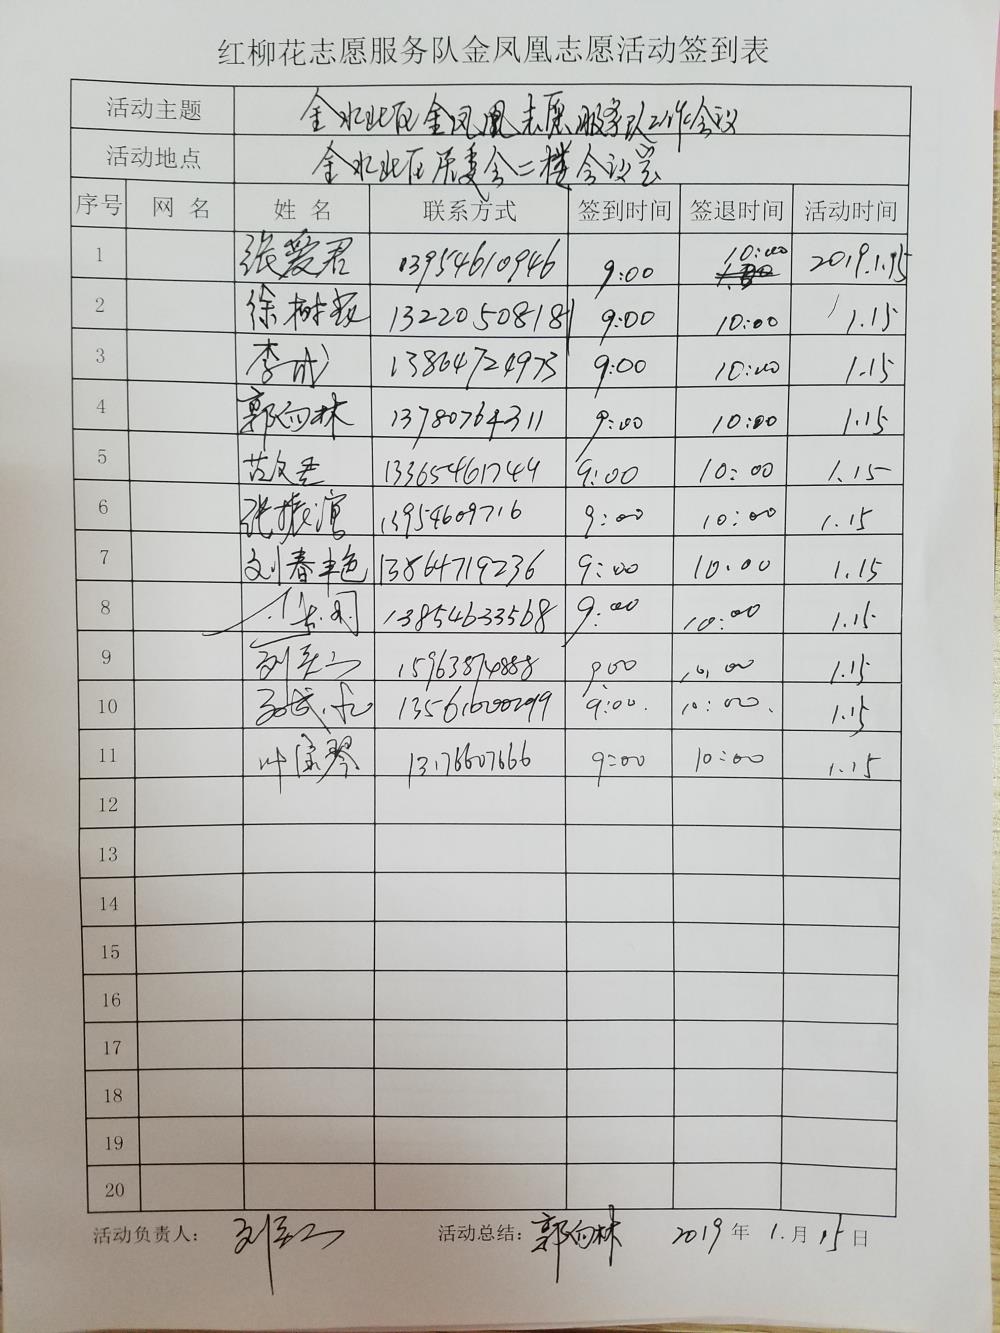 红柳花志愿服务队金凤凰志愿活动签到表
活动主题 金水北区金凤凰志愿服务队工作会议
活动地点 金水北区居委会二楼会议室
序号 网名 姓名 联系方式 签到时间 签退时间 活动时间
1 张爱君 13954610946 9:00 10:00 2019.1.15
2 徐树 13220508181 9:00 10:00 1.15
3 李 13864724973 9:00 10:00 1.15
4 郭向林 13780764311 9:00 10:00 1.15
5 13365461744 9:00 10:00 1.15
6 张振滨 13954609716 9:00 10:00 1.15
7 刘春艳 13864719236 9:00 10:00 1.15
8 13854633568 9:00 10:00 1.15
9 刘 15963874888 9:00 10:00 1.15
10 13561600299 9:00. 10:00. 1.15
11 叶宝琴 13176607666 9:00 10:00 1.15
12
13
14
15
16
17
18
19
20
活动负责人: 刘 活动总结: 郭向林 2019年1.月15日